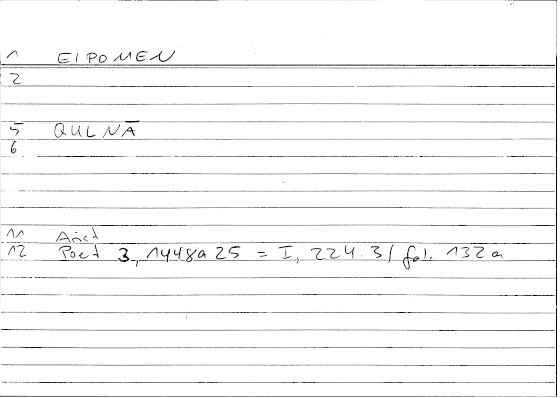 1 EIPOMEN
2
5 QULNĀ
6
11 Arist
12 Poet 3, 1448a 25 = I, 224.3 / fol. 132a